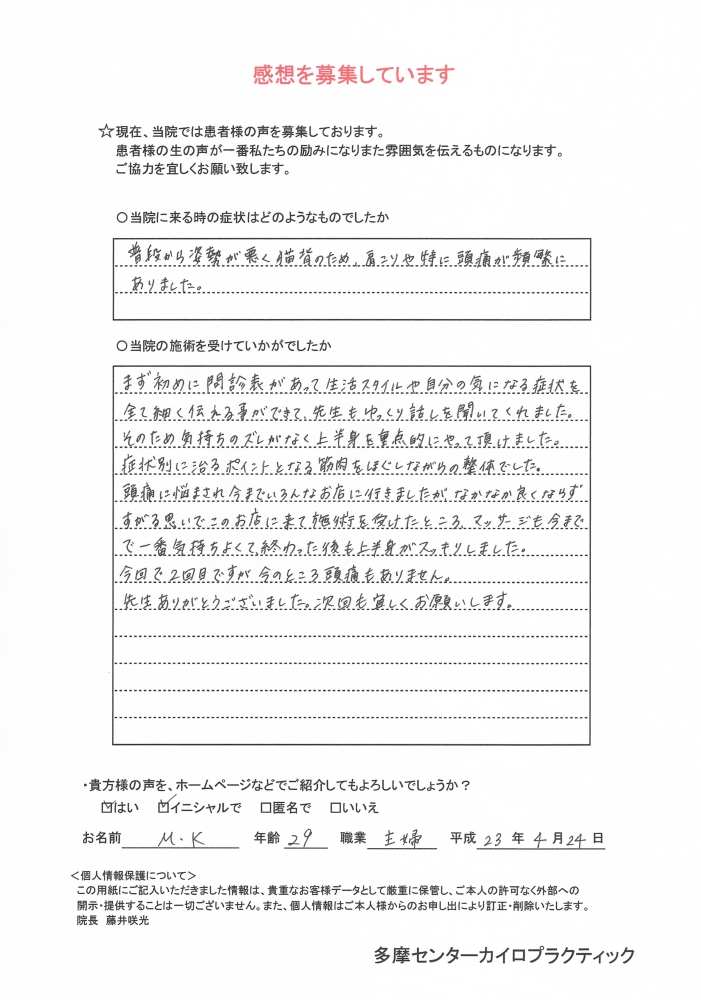 感想を募集しています
☆現在、当院では患者様の声を募集しております。
患者様の生の声が一番私たちの励みになりまた雰囲気を伝えるものになります。
ご協力を宜しくお願い致します。
○当院に来る時の症状はどのようなものでしたか
普段から姿勢が悪く猫背のため、肩こりや特に頭痛が頻繁に
ありました。
○当院の施術を受けていかがでしたか
まず初めに問診表があって生活スタイルや自分の気になる症状を
全て細く伝える事ができて、先生もゆっくり話しを聞いてくれました。
そのため気持ちのズレがなく上半身を重点的にやって頂けました。
症状別に治るポイントとなる筋肉をほぐしながらの整体でした。
頭痛に悩まされ今までいろんなお店に行きましたがなかなか良くならず
すがる思いでこのお店に来て施術を受けたところ、マッサージも今まで
で一番気持ちよくて終わった後も上半身がスッキりしました。
今回で2回目ですが今のところ頭痛もありません。
先生ありがとうございました。次回も宜しくお願いします。
・貴方様の声を、ホームページなどでご紹介してもよろしいでしょうか？
☑はい ☑イニシャルで □匿名で □いいえ
お名前 M・K 年齢 29 職業 主婦 平成 23 年 4 月 24 日
＜個人情報保護について＞
この用紙にご記入いただきました情報は、貴重なお客様データとして厳重に保管し、ご本人の許可なく外部への
開示・提供することは一切ございません。また、個人情報はご本人様からのお申し出により訂正・削除いたします。
院長 藤井咲光
多摩センターカイロプラクティック